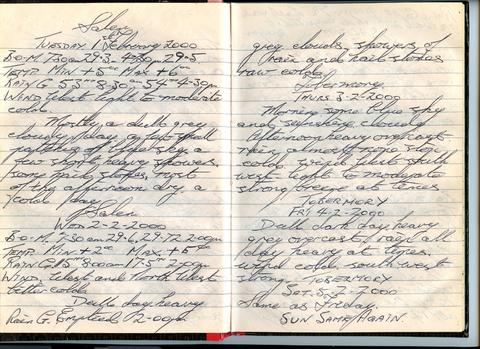 Salen
Tuesday 1st February 2000
B.O.M. 7-30am 29-3. 4-30pm 29-5
Temp. Min +5° Max +6°
Rain G 53 8-30 54 4-30pm
Wind West light to moderate
cold.
Mostly a dull grey
cloudy day a few small
patches of blue sky a
few short heavy showers
some hail stones, rest
of the afternoon dry a
cold day
Salen
Wed 2-2-2000
B.O.M. 7-30am 29-6, 29-72 2-00pm
Temp. Min +2° Max +5°
Rain G. 8-00am 2-00pm
Wind, West and North West
bitter cold.
Dull day heavy
Rain G. Emptied 2-00pm
grey clouds, showers of
rain and hail stones
raw cold.
Tobermory
Thurs 3-2-2000
Morning some blue sky
and sunshine, cloudy
afternoon heavy overcast
rain almost none stop
cold wind West south
west light to moderate
strong breeze at times
Tobermory
Fri 4-2-2000
Dull dark day heavy
grey overcast, rain all
day heavy at times.
wind cold south west
strong. Tobermory
Sat. 5-2-2000
Same as Friday.
Sun Same Again.